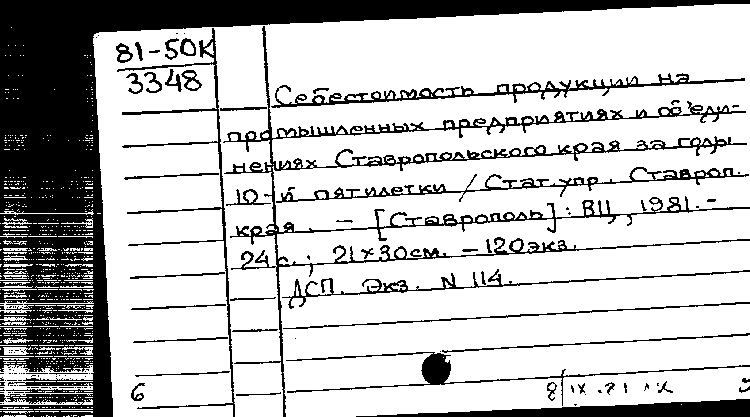 81-50К
3348
Себестоимость продукции на
промышленных предприятиях и объеди-
нениях Ставропольского края за годы
10-й пятилетки / Стат. упр. Ставроп.
края. - [Ставрополь]: ВЦ, 1981. -
24 с.; 21×30см. - 120экз.
ДСП. Экз. N 114.
6